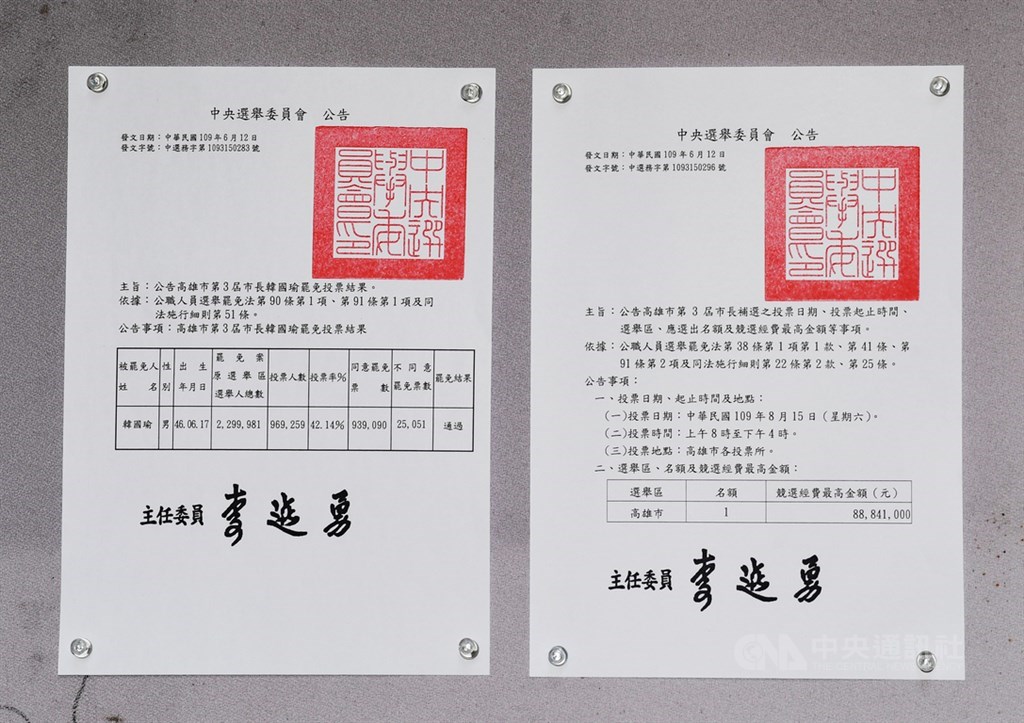 中央選舉委員會 公告
發文日期：中華民國109年6月12日
發文字號：中選務字第1093150283號
中央選舉委員會印
主旨：公告高雄市第3屆市長韓國瑜罷免投票結果。
依據：公職人員選舉罷免法第90條第1項、第91條第1項及同
法施行細則第51條。
公告事項：高雄市第3屆市長韓國瑜罷免投票結果
被罷免人姓名 性別 出生年月日 罷免案原選舉區選舉人總數 投票人數 投票率% 同意罷免票數 不同意罷免票數 罷免結果
韓國瑜 男 46.06.17 2,299,981 969,259 42.14% 939,090 25,051 通過
主任委員 李進勇
中央選舉委員會 公告
發文日期：中華民國109年6月12日
發文字號：中選務字第1093150296號
中央選舉委員會印
主旨：公告高雄市第3屆市長補選之投票日期、投票起止時間、
選舉區、應選出名額及競選經費最高金額等事項。
依據：公職人員選舉罷免法第38條第1項第1款、第41條、第
91條第2項及同法施行細則第22條第2款、第25條。
公告事項：
一、投票日期、起止時間及地點：
(一)投票日期：中華民國109年8月15日(星期六)。
(二)投票時間：上午8時至下午4時。
(三)投票地點：高雄市各投票所。
二、選舉區、名額及競選經費最高金額：
選舉區 名額 競選經費最高金額(元)
高雄市 1 88,841,000
主任委員 李進勇
CNA 中央通訊社